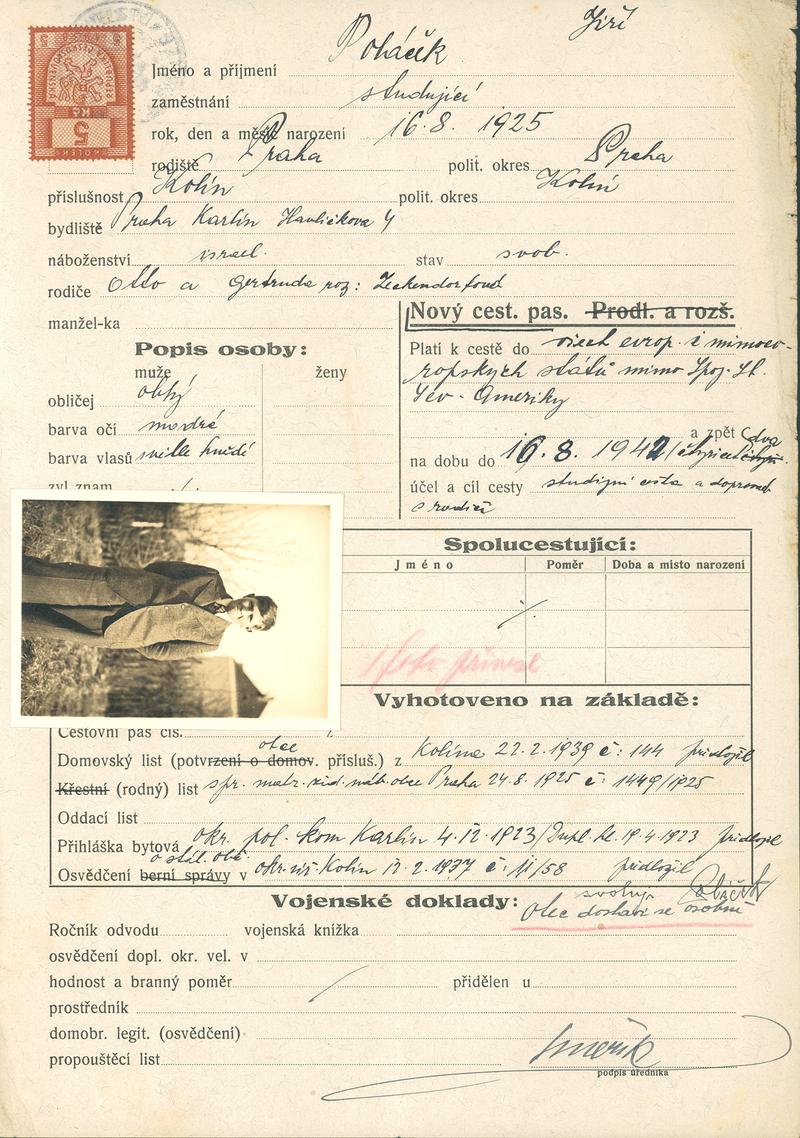 Jiří
Jméno a příjmení Poláček
zaměstnání studující
rok, den a měsíc narození 16.8. 1925
rodiště Praha polit. okres Praha
příslušnost Kolín polit. okres Kolín
bydliště Praha Karlín Havlíčkova 4
náboženství israel. stav svob.
rodiče Otto a Gertruda roz: Zeckendorfová
manžel-ka
Nový cest. pas. Prodl. a rozš.
Popis osoby:
muže ženy
obličej oblý
barva očí modré
barva vlasů světle hnědé
zvl. znam.
Platí k cestě do všech evrop. i mimoev-
ropských států mimo Spoj. St.
Sev. Ameriky
a zpět (dva
na dobu do 16.8. 1942 / čtyřicet
účel a cíl cesty studijní cesta a doprovod
s rodiči
Spolucestující:
Jméno Poměr Doba a místo narození
1 foto přinese
Vyhotoveno na základě:
Cestovní pas čís.
obce
Domovský list (potvrzení o domov. přísluš.) z Kolína 22.2.1939 č: 144 přidložil
Křestní (rodný) list spr. matr. žid. náb. obce Praha 24.8.1925 č. 1449/1925
Oddací list
Přihláška bytová okr. pol. kom Karlín 4.IV.1923/Dupl. 19.4.1923 přidložil
o stál. obč.
Osvědčení berní správy v okr. úř. Kolín 2.1937 č. 11/58 přidložil
Vojenské doklady: svoluj. Poláček
Otec dostaví se osobně
Ročník odvodu vojenská knížka
osvědčení dopl. okr. vel. v
hodnost a branný poměr přidělen u
prostředník
domobr. legit. (osvědčení)
propouštěcí list
podpis úředníka
5